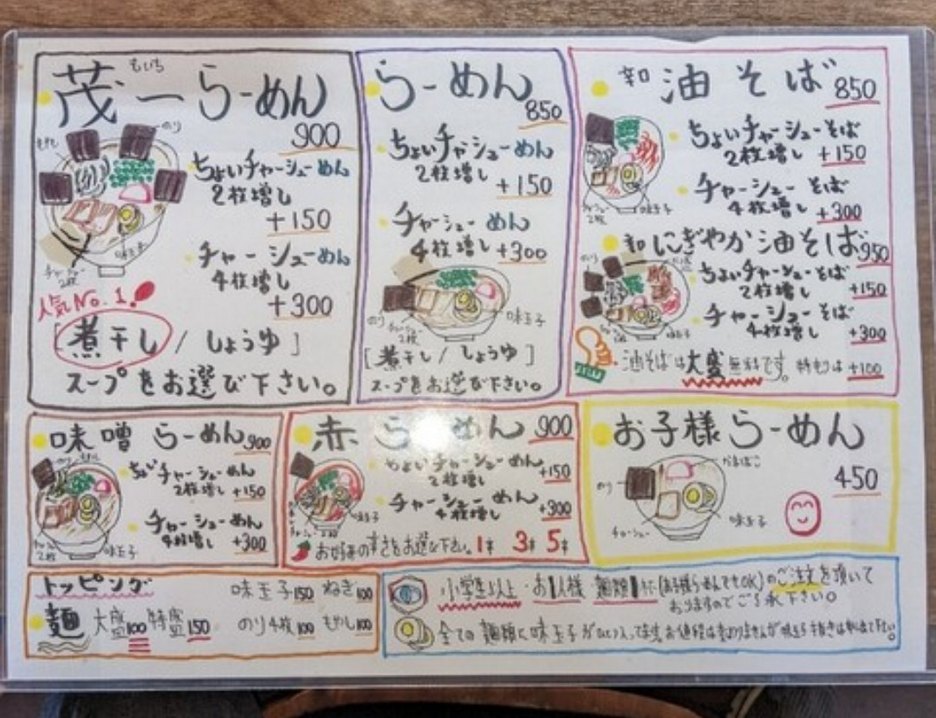 もいち
茂一らーめん
900
もやし
のり
ちょいチャーシューめん
2枚増し
+150
チャーシューめん
4枚増し
+300
味玉子
チャーシュー
2枚
人気No.1
[煮干し / しょうゆ]
スープをお選び下さい。
らーめん
850
ちょいチャーシューめん
2枚増し
+150
チャーシューめん
4枚増し +300
のり
チャーシュー
2枚
味玉子
[煮干し / しょうゆ]
スープをお選び下さい。
油そば 850
ちょいチャーシューそば
2枚増し +150
チャーシューそば
4枚増し +300
チャーシュー
2枚
味玉子
にぎやか油そば 950
ちょいチャーシューそば
2枚増し +150
チャーシューそば
4枚増し +300
のり
味玉子
油そばは大盛無料です。特もりは+100
味噌らーめん 900
のり もやし
ちょいチャーシューめん
2枚増し +150
チャーシューめん
4枚増し +300
チャーシュー
2枚
味玉子
赤らーめん 900
ちょいチャーシューめん
2枚増し +150
チャーシューめん
4枚増し +300
チャーシュー
2枚
味玉子
お好みの辛さをお選び下さい。1辛 3辛 5辛
お子様らーめん
450
かまぼこ
のり
チャーシュー
味玉子
トッピング
味玉子150 ねぎ100
麺 大盛100 特盛150
のり4枚100 もやし100
小学生以上・お1人様 麺類1杯(お子様らーめんでもOK)のご注文を頂いて
おりますのでご了承下さい。
全ての麺類に味玉子が入ってます。お値段は変わりませんが味玉子抜きは